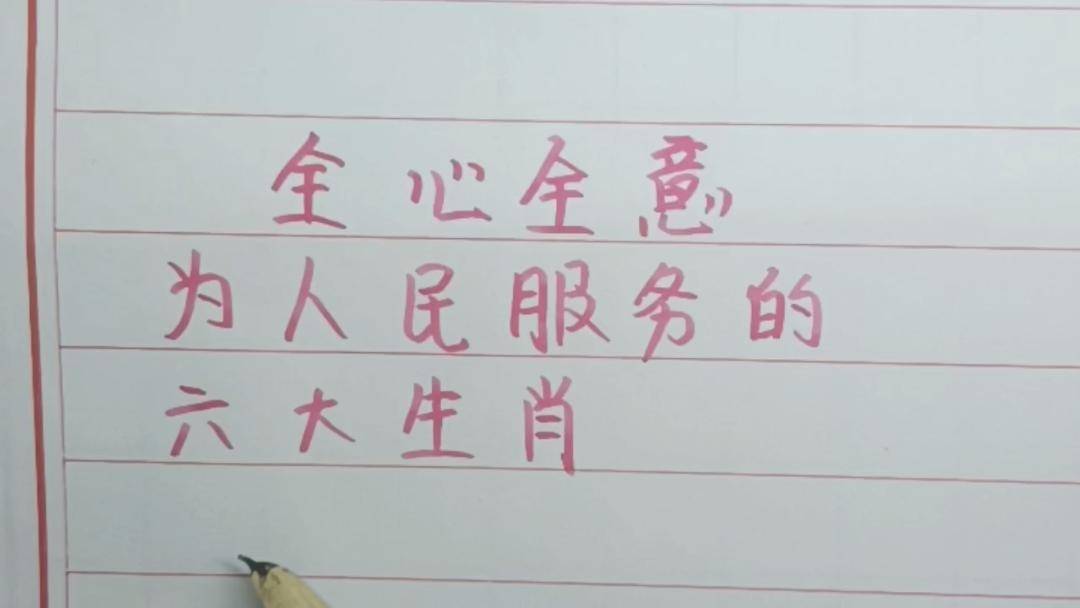 全心全意
为人民服务的
六大生肖